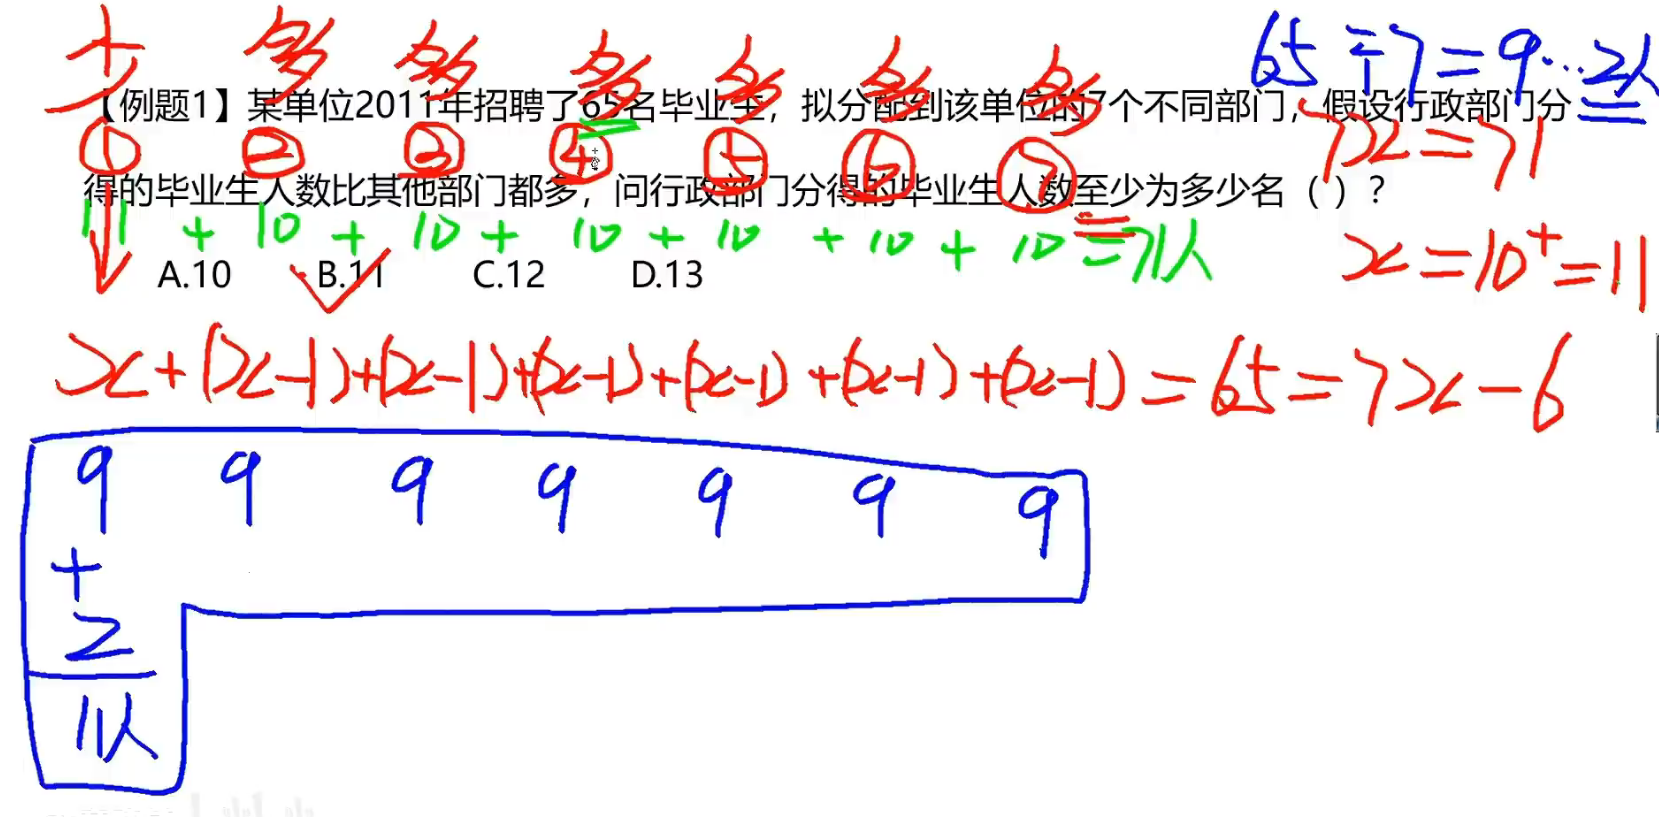 少 多 多 多 多 多 多
65÷7=9…2人
【例题1】某单位2011年招聘了65名毕业生，拟分配到该单位的7个不同部门，假设行政部门分
① ② ③ ④ ⑤ ⑥ ⑦
7x=71
得的毕业生人数比其他部门都多，问行政部门分得的毕业生人数至少为多少名（ ）？
11 + 10 + 10 + 10 + 10 + 10 + 10 =71人
x=10⁺=11
A.10 B.11 C.12 D.13
x+(x-1)+(x-1)+(x-1)+(x-1)+(x-1)+(x-1)=65=7x-6
9 9 9 9 9 9 9
+
2
11人